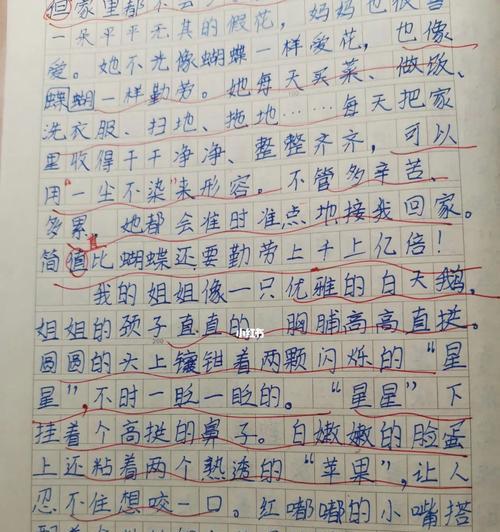 但家里都不会
一朵平平无其的假花，妈妈也很喜
爱。她不光像蝴蝶一样爱花，也像
蝶蝴一样勤劳。她每天买菜、做饭、
洗衣服、扫地、拖地……每天把家
里收得干干净净、整整齐齐，可以
用“一尘不染”来形容。不管多辛苦、
多累，她都会准时准点地接我回家。
直
简值比蝴蝶还要勤劳上千上亿倍！
我的姐姐像一只优雅的白天鹅，
姐姐的颈子直直的，胸脯高高直挺。
小红书
圆圆的头上镶钳着两颗闪烁的“星
星”，不时一眨一眨的。“星星”下
挂着个高挺的鼻子。白嫩嫩的脸蛋
上还粘着两个熟透的“苹果”，让人
忍不住想咬一口。红嘟嘟的小嘴搭